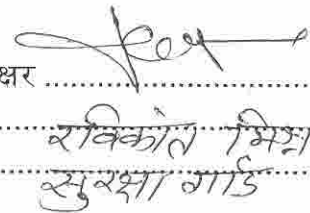 क्षर ..........
रविकांत मिश्र
सुरक्षा गार्ड